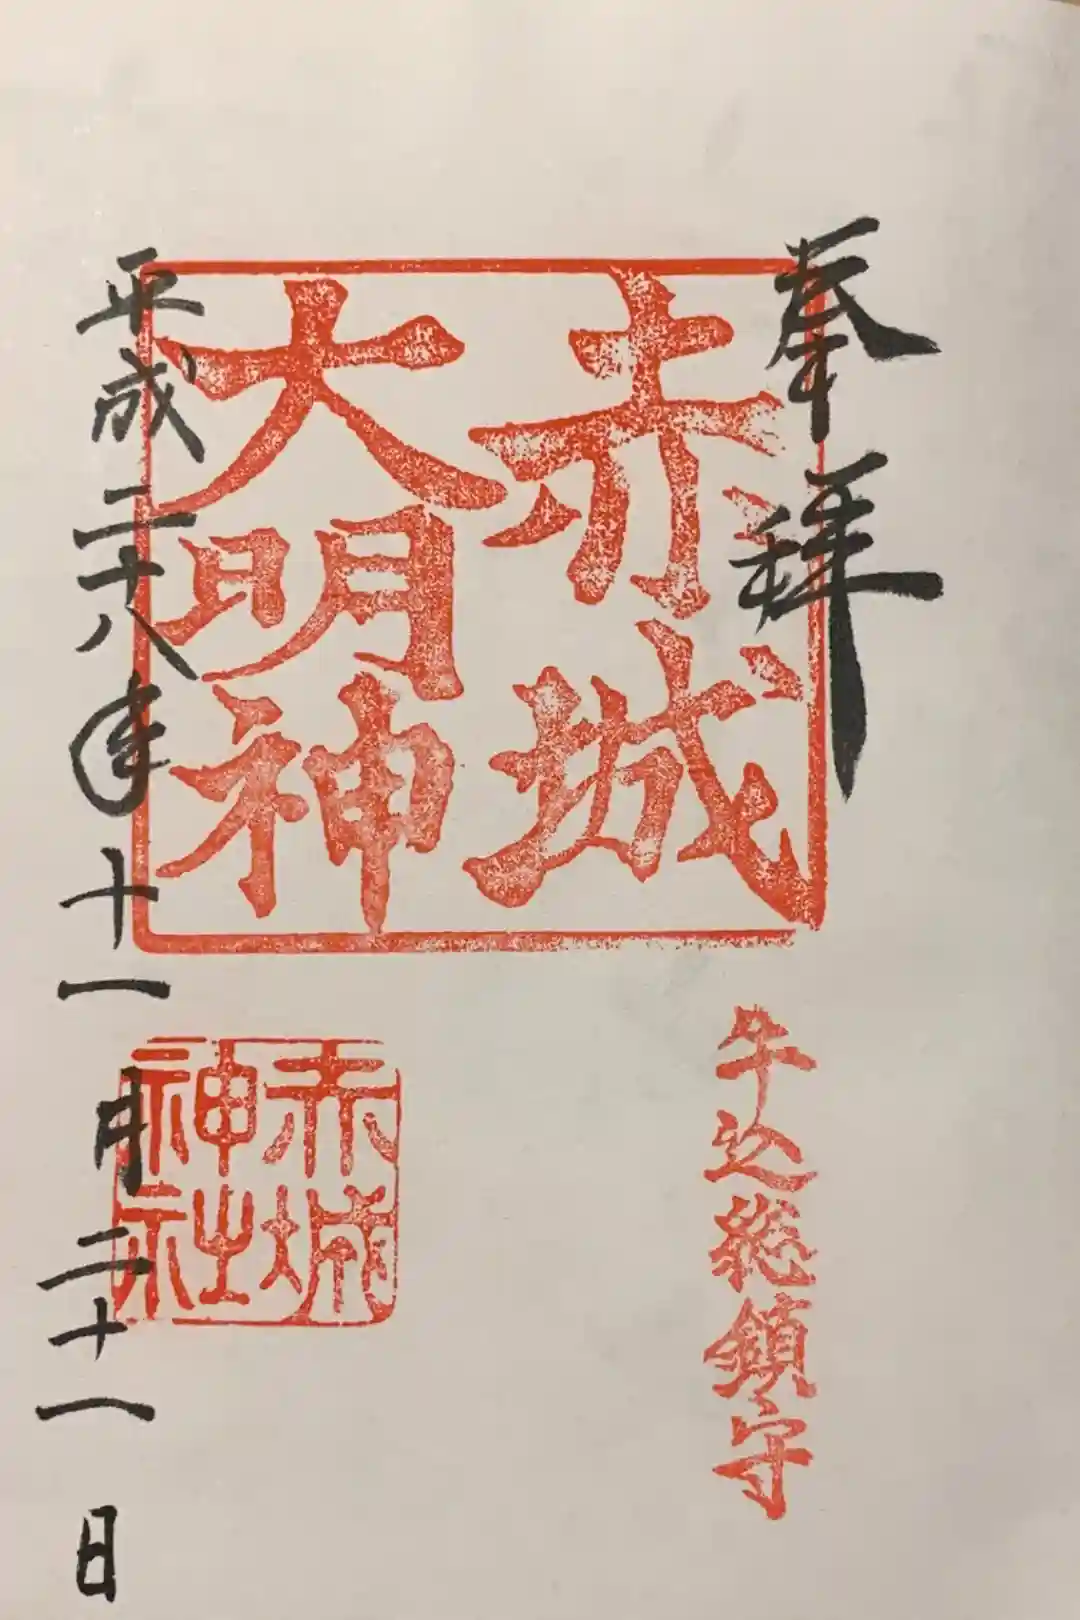 奉拝
赤城
大明神
牛込総鎮守
赤城
神社
平成二十八年十一月二十一日